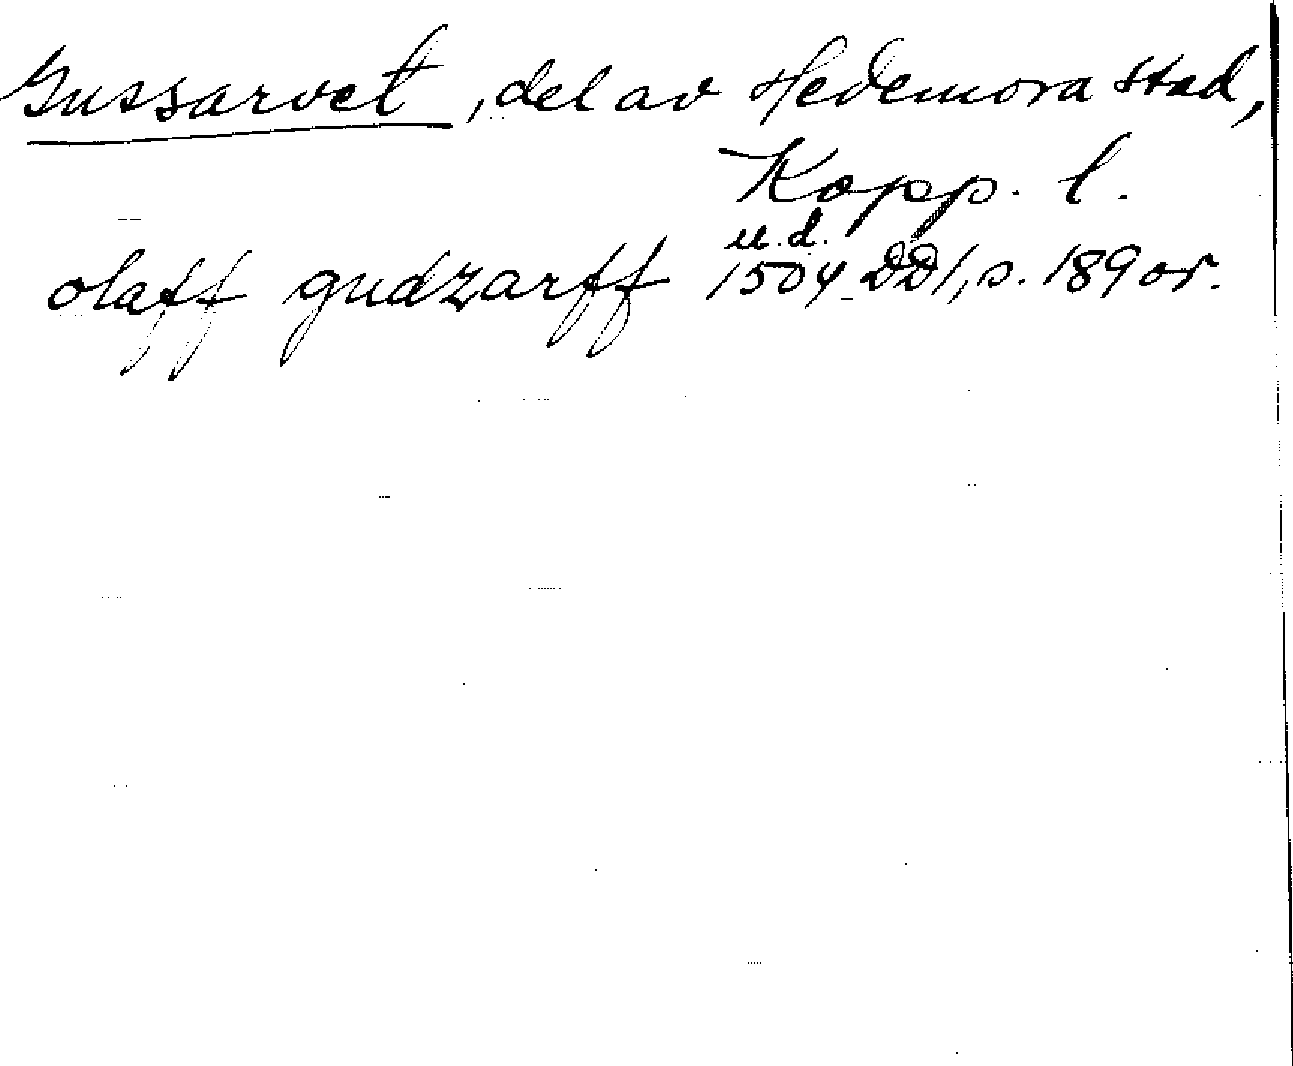 Gussarvet, del av Hedemora stad,
Kopp. l.
u.d.
olaff gudzarff 1504 DD1, s. 189 or.